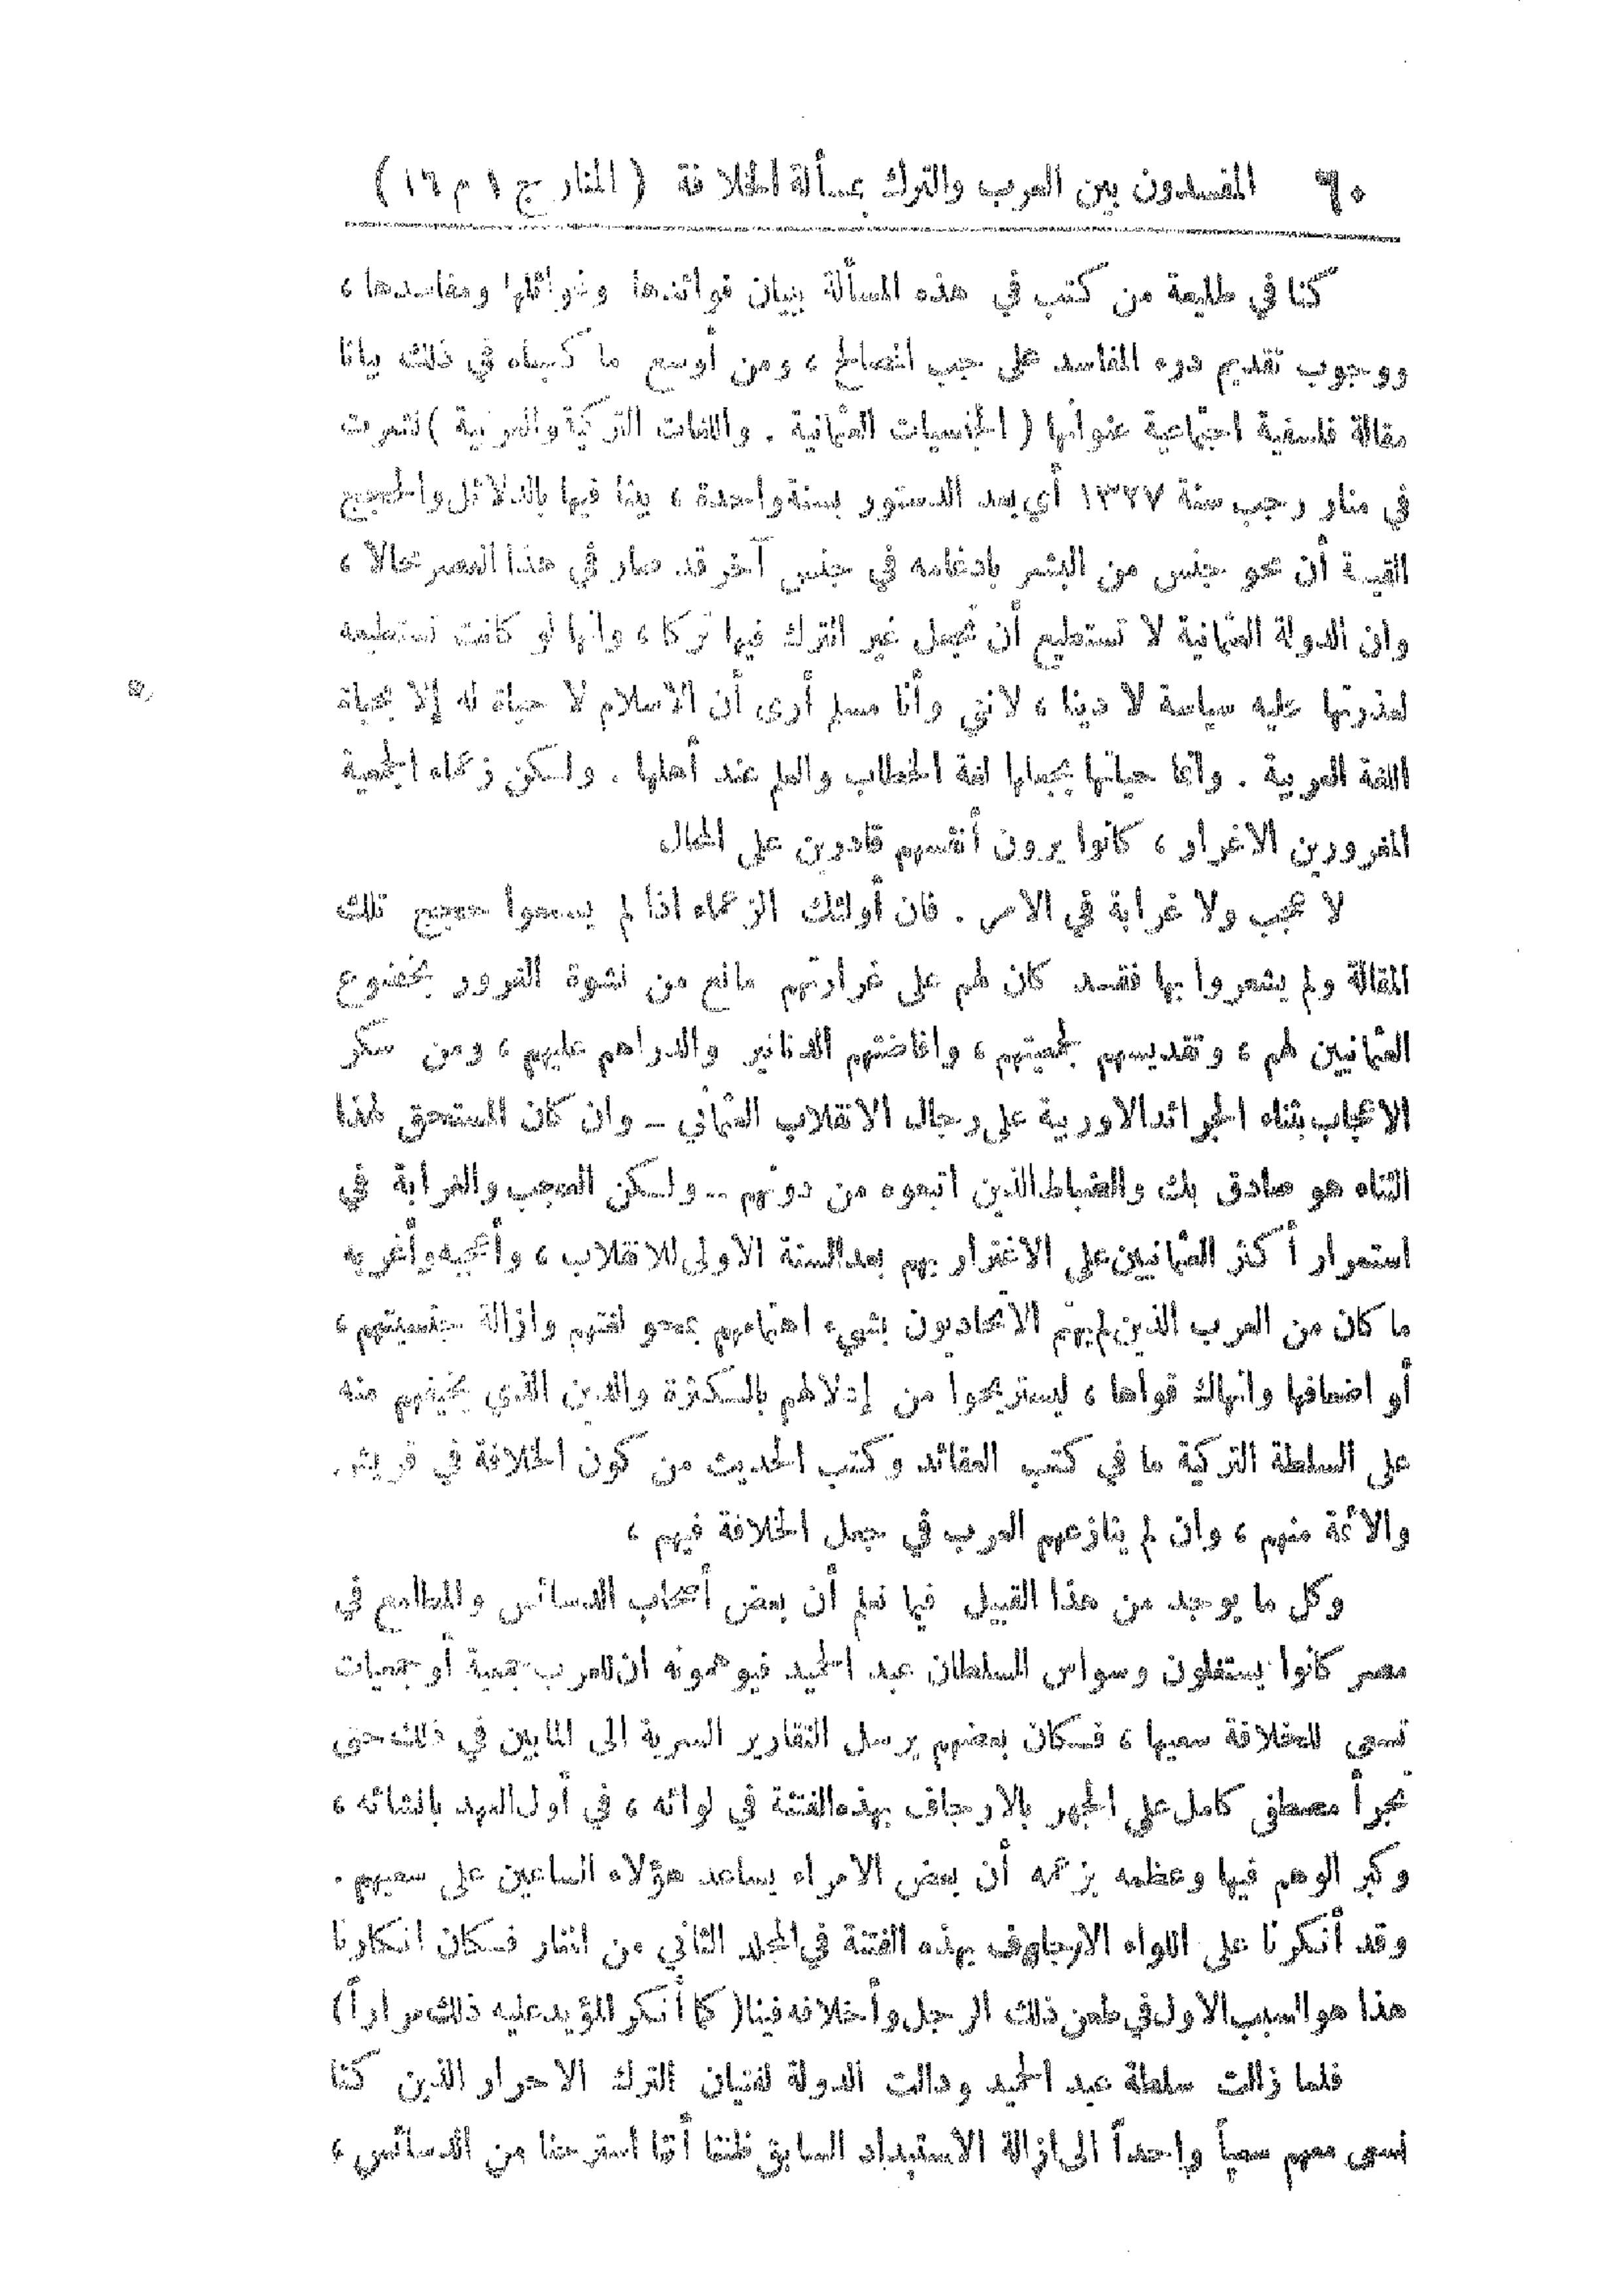 ٦٠ المفسدون بين العرب والترك بمسألة الخلافة ( المنار ج ١ م ١٦ )
كنا في طليعة من كتب في هذه المسألة ببيان فوائدها وغوائلها ومفاسدها ،
ووجوب تقديم درء المفاسد على جلب المصالح ، ومن أوسع ما كتبناه في ذلك بيانا
مقالة فلسفية اجتماعية عنوانها ( الجنسيات العثمانية . واللغات التركية والعربية ) نشرت
في منار رجب سنة ١٣٢٧ أي بعد الدستور بسنة واحدة ، بينا فيها بالدلائل والحجج
القيمة أن محو جنس من البشر بادغامه في جنس آخر قد صار في هذا العصر محالا ،
وان الدولة العثمانية لا تستطيع أن تجعل غير الترك فيها تركا ، وانها لو كانت تستطيعه
لعذرتها عليه سياسة لا دينا ، لانني وأنا مسلم أرى أن الاسلام لا حياة له إلا بحياة
اللغة العربية . وانما حياتها بجعلها لغة الخطاب والعلم عند أهلها . ولكن زعماء الجمعية
المغرورين الاغرار ، كانوا يرون أنفسهم قادرين على المحال
لا عجب ولا غرابة في الامر . فان أولئك الزعماء اذا لم يسمعوا حجج تلك
المقالة ولم يشعروا بها فقد كان لهم على غرارتهم مانع من نشوة الغرور بخضوع
العثمانيين لهم ، وتقديسهم لجمعيتهم ، وافاضتهم الدنانير والدراهم عليهم ، ومن سكر
الاعجاب بثناء الجرائد الاوربية على رجال الانقلاب العثماني – وان كان المستحق لهذا
الثناء هو صادق بك والضباط الذين اتبعوه من دونهم – ولكن العجب والغرابة في
استمرار أكثر العثمانيين على الاغترار بهم بعد السنة الاولى للانقلاب ، وأعجبه وأغربه
ما كان من العرب الذين لم يهتم الاتحاديون بشيء اهتمامهم بمحو لغتهم وازالة جنسيتهم ،
أو اضعافها وانهاك قواها ، ليستريحوا من إدلالهم بالكثرة والدين الذي يخيفهم منه
على السلطة التركية ما في كتب العقائد وكتب الحديث من كون الخلافة في قريش
والأئمة منهم ، وان لم ينازعهم العرب في جعل الخلافة فيهم ،
وكل ما يوجد من هذا القبيل فيما نعلم أن بعض أصحاب الدسائس والمطامع في
مصر كانوا يستغلون وسواس السلطان عبد الحميد فيوهمونه ان للعرب جمعية أو جمعيات
تسعى للخلافة سعيها ، فكان بعضهم يرسل التقارير السرية الى المابين في ذلك حتى
تجرأ مصطفى كامل على الجهر بالارجاف بهذه الفتنة في لوائه ، في أول العهد بانشائه ،
وكبر الوهم فيها وعظمه بزعمه أن بعض الامراء يساعد هؤلاء الساعين على سعيهم .
وقد أنكرنا على اللواء الارجاف بهذه الفتنة في المجلد الثاني من المنار فكان انكارنا
هذا هو السبب الاول في طعن ذلك الرجل وأخلافه فينا ( كما أنكر المؤيد عليه ذلك مراراً )
فلما زالت سلطة عبد الحميد ودالت الدولة لفتيان الترك الاحرار الذين كنا
نسعى معهم سعياً واحداً الى ازالة الاستبداد السابق ظننا أننا استرحنا من الدسائس ،